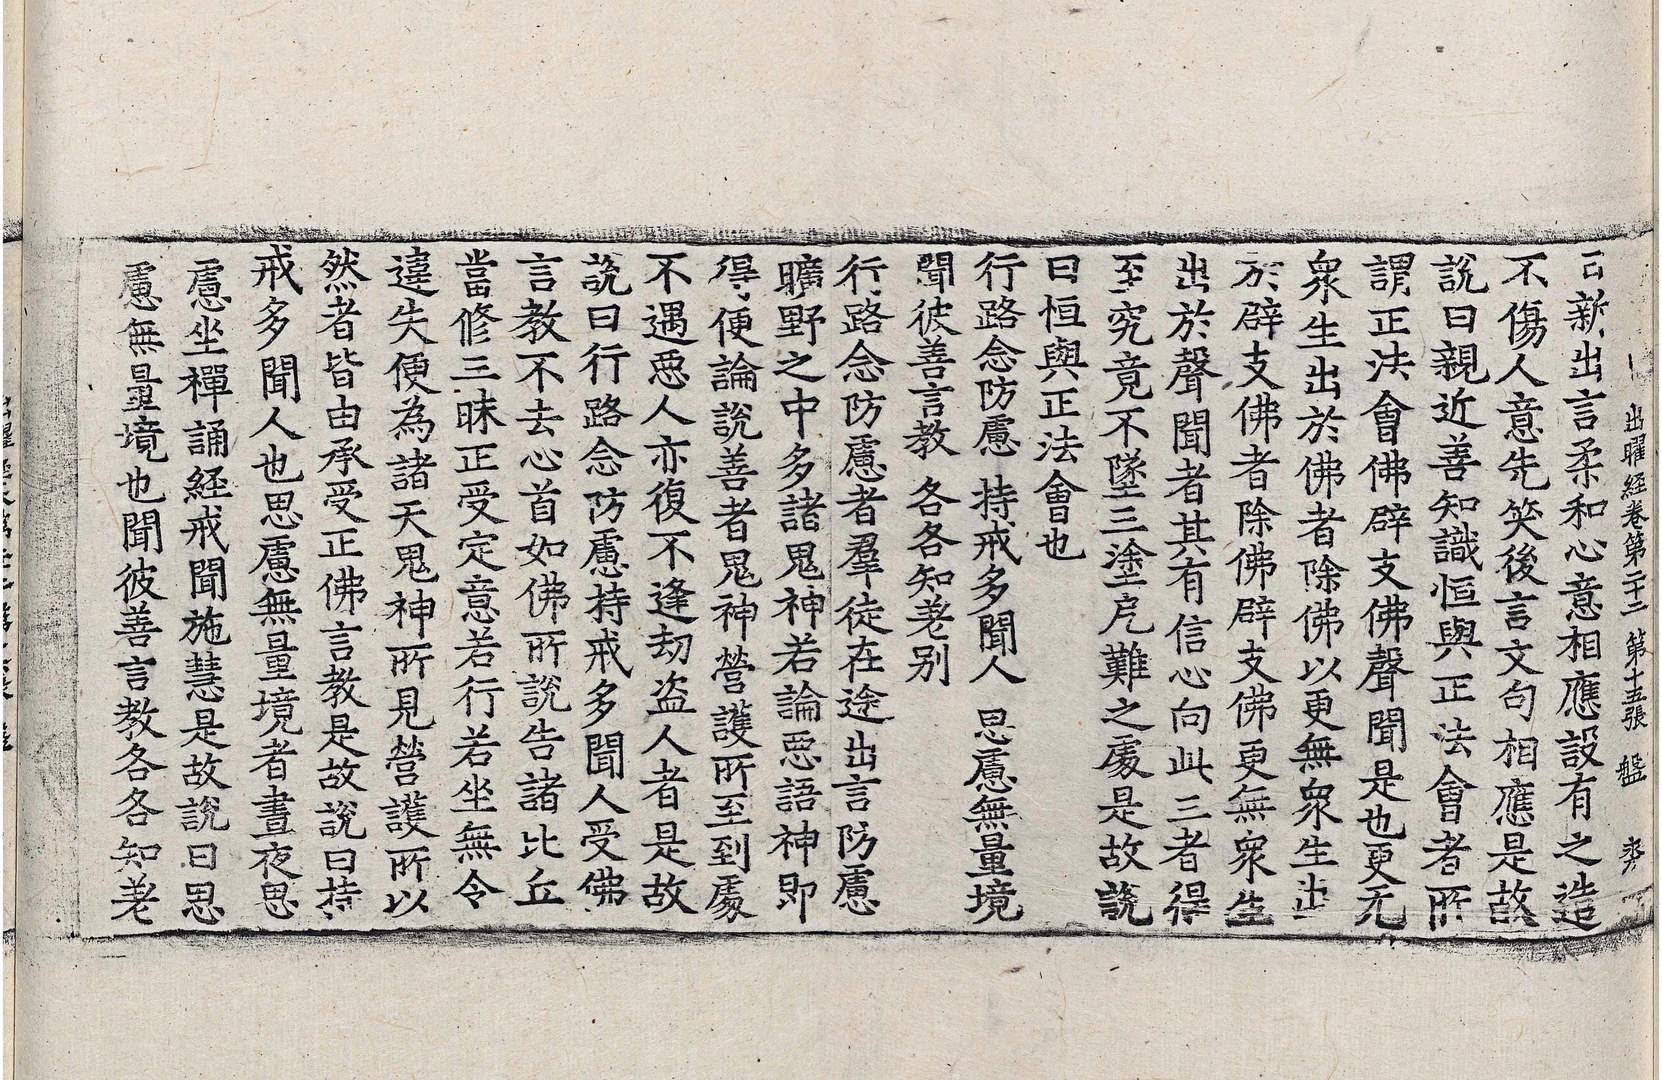 出曜経巻第二十二　第十五張　盤
新出言柔和心意相應設有之造
不傷人意先笑後言文句相應是故
說曰親近善知識恒與正法會者所
謂正法會佛辟支佛聲聞是也更无
衆生出於佛者除佛以更無衆生出
於辟支佛者除佛辟支佛更無衆生
出於聲聞者其有信心向此三者得
至究竟不墜三塗厄難之處是故說
曰恒與正法會也
行路念防慮　持戒多聞人　思慮無量境
聞彼善言教　各各知差别
行路念防慮者羣徒在途出言防慮
曠野之中多諸鬼神若論惡語神即
得便論說善者鬼神營護所至到處
不遇惡人亦復不逢劫盗人者是故
說曰行路念防慮持戒多聞人受佛
言教不去心首如佛所說告諸比丘
當修三昧正受定意若行若坐無令
違失便為諸天鬼神所見營護所以
然者皆由承受正佛言教是故說曰持
戒多聞人也思慮無量境者晝夜思
慮坐禪誦経戒聞施慧是故說曰思
慮無量境也聞彼善言教各各知差